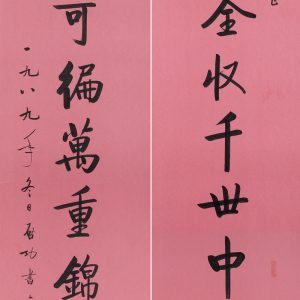 全収千世中
可編萬重錦
一九八九年冬日启功書